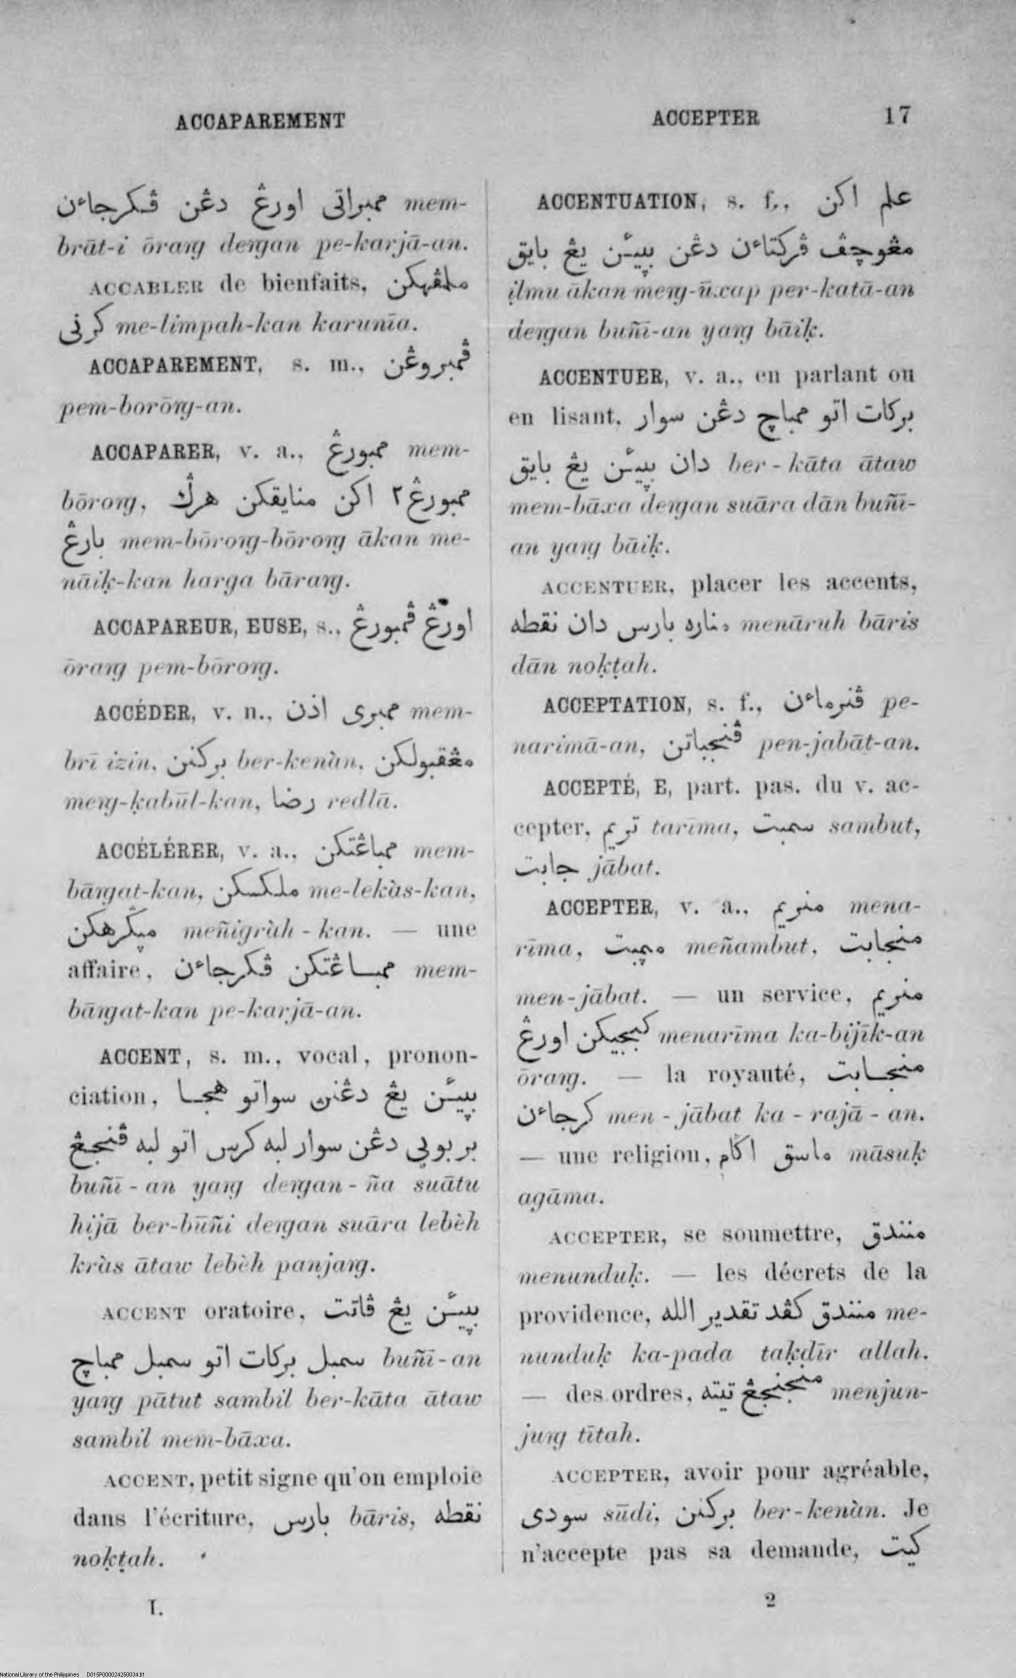 ACCAPAREMENT
ممبراتي اورڠ دڠن ڤكرجاءن mem-
brāt-i ōraŋg deŋgan pe-karjā-an.
ACCABLER de bienfaits, ملمڤهكن
كرني me-limpah-kan karunīa.
ACCAPAREMENT, s. m., ڤمبروڠن
pem-borōŋg-an.
ACCAPARER, v. a., ممبورڠ mem-
bōroŋg, ممبورڠ٢ اكن منايقكن هرݢ
بارڠ mem-bōroŋg-bōroŋg ākan me-
nāiḳ-kan harga bāraŋg.
ACCAPAREUR, EUSE, s., اورڠ ڤمبورڠ
ōraŋg pem-bōroŋg.
ACCÉDER, v. n., ممبري اذن mem-
brī izin, بركنن ber-kenàn, مڠقبولكن
meŋg-ḳabūl-kan, رضا redlā.
ACCÉLÉRER, v. a., ممباڠتكن mem-
bāŋgat-kan, ملكسكن me-lekàs-kan,
مڽݢرهكن meñigràh-kan. — une
affaire, ممباڠتكن ڤكرجاءن mem-
bāŋgat-kan pe-karjā-an.
ACCENT, s. m., vocal, pronon-
ciation, بوڽين يڠ دڠنڽ سواتو هجا
بربوڽي دڠن سوار لبه كرس اتو لبه ڤنجڠ
buñī-an yaŋg deŋgan-ña suātu
hijā ber-būñi deŋgan suāra lebèh
kràs ātaw lebèh panjaŋg.
ACCENT oratoire, بوڽين يڠ ڤاتت
سمبل بركات اتو سمبل ممباچ buñī-an
yaŋg pātut sambil ber-kāta ātaw
sambil mem-bāxa.
ACCENT, petit signe qu'on emploie
dans l'écriture, بارس bāris, نقطه
noḳṭah.
I.
ACCEPTER 17
ACCENTUATION, s. f., علم اكن
مڠوچڤ ڤركتاءن دڠن بوڽين يڠ بايق
ilmu ākan meŋg-ūxap per-katā-an
deŋgan buñī-an yaŋg bāiḳ.
ACCENTUER, v. a., en parlant ou
en lisant, بركات اتو ممباچ دڠن سوار
دان بوڽين يڠ بايق ber-kāta ātaw
mem-bāxa deŋgan suāra dān buñī-
an yaŋg bāiḳ.
ACCENTUER, placer les accents,
مناره بارس دان نقطه menāruh bāris
dān noḳṭah.
ACCEPTATION, s. f., ڤنرماءن pe-
narimā-an, ڤنجباتن pen-jabāt-an.
ACCEPTÉ, E, part. pas. du v. ac-
cepter, تريم tarīma, سمبت sambut,
جابت jābat.
ACCEPTER, v. a., منريم mena-
rīma, مڽمبت meñambut, منجابت
men-jābat. — un service, منريم
كبجيكن اورڠ menarīma ka-bijīk-an
ōraŋg. — la royauté, منجابت
كرجاءن men-jābat ka-rajā-an.
— une religion, ماسق اݢام māsuḳ
agāma.
ACCEPTER, se soumettre, منندق
menunduḳ. — les décrets de la
providence, منندق كڤد تقدير الله me-
nunduḳ ka-pada taḳdīr allah.
— des ordres, منجنجڠ تيته menjun-
juŋg tītah.
ACCEPTER, avoir pour agréable,
سودي sūdi, بركنن ber-kenàn. Je
n'accepte pas sa demande, كيت
2
National Library of the Philippines